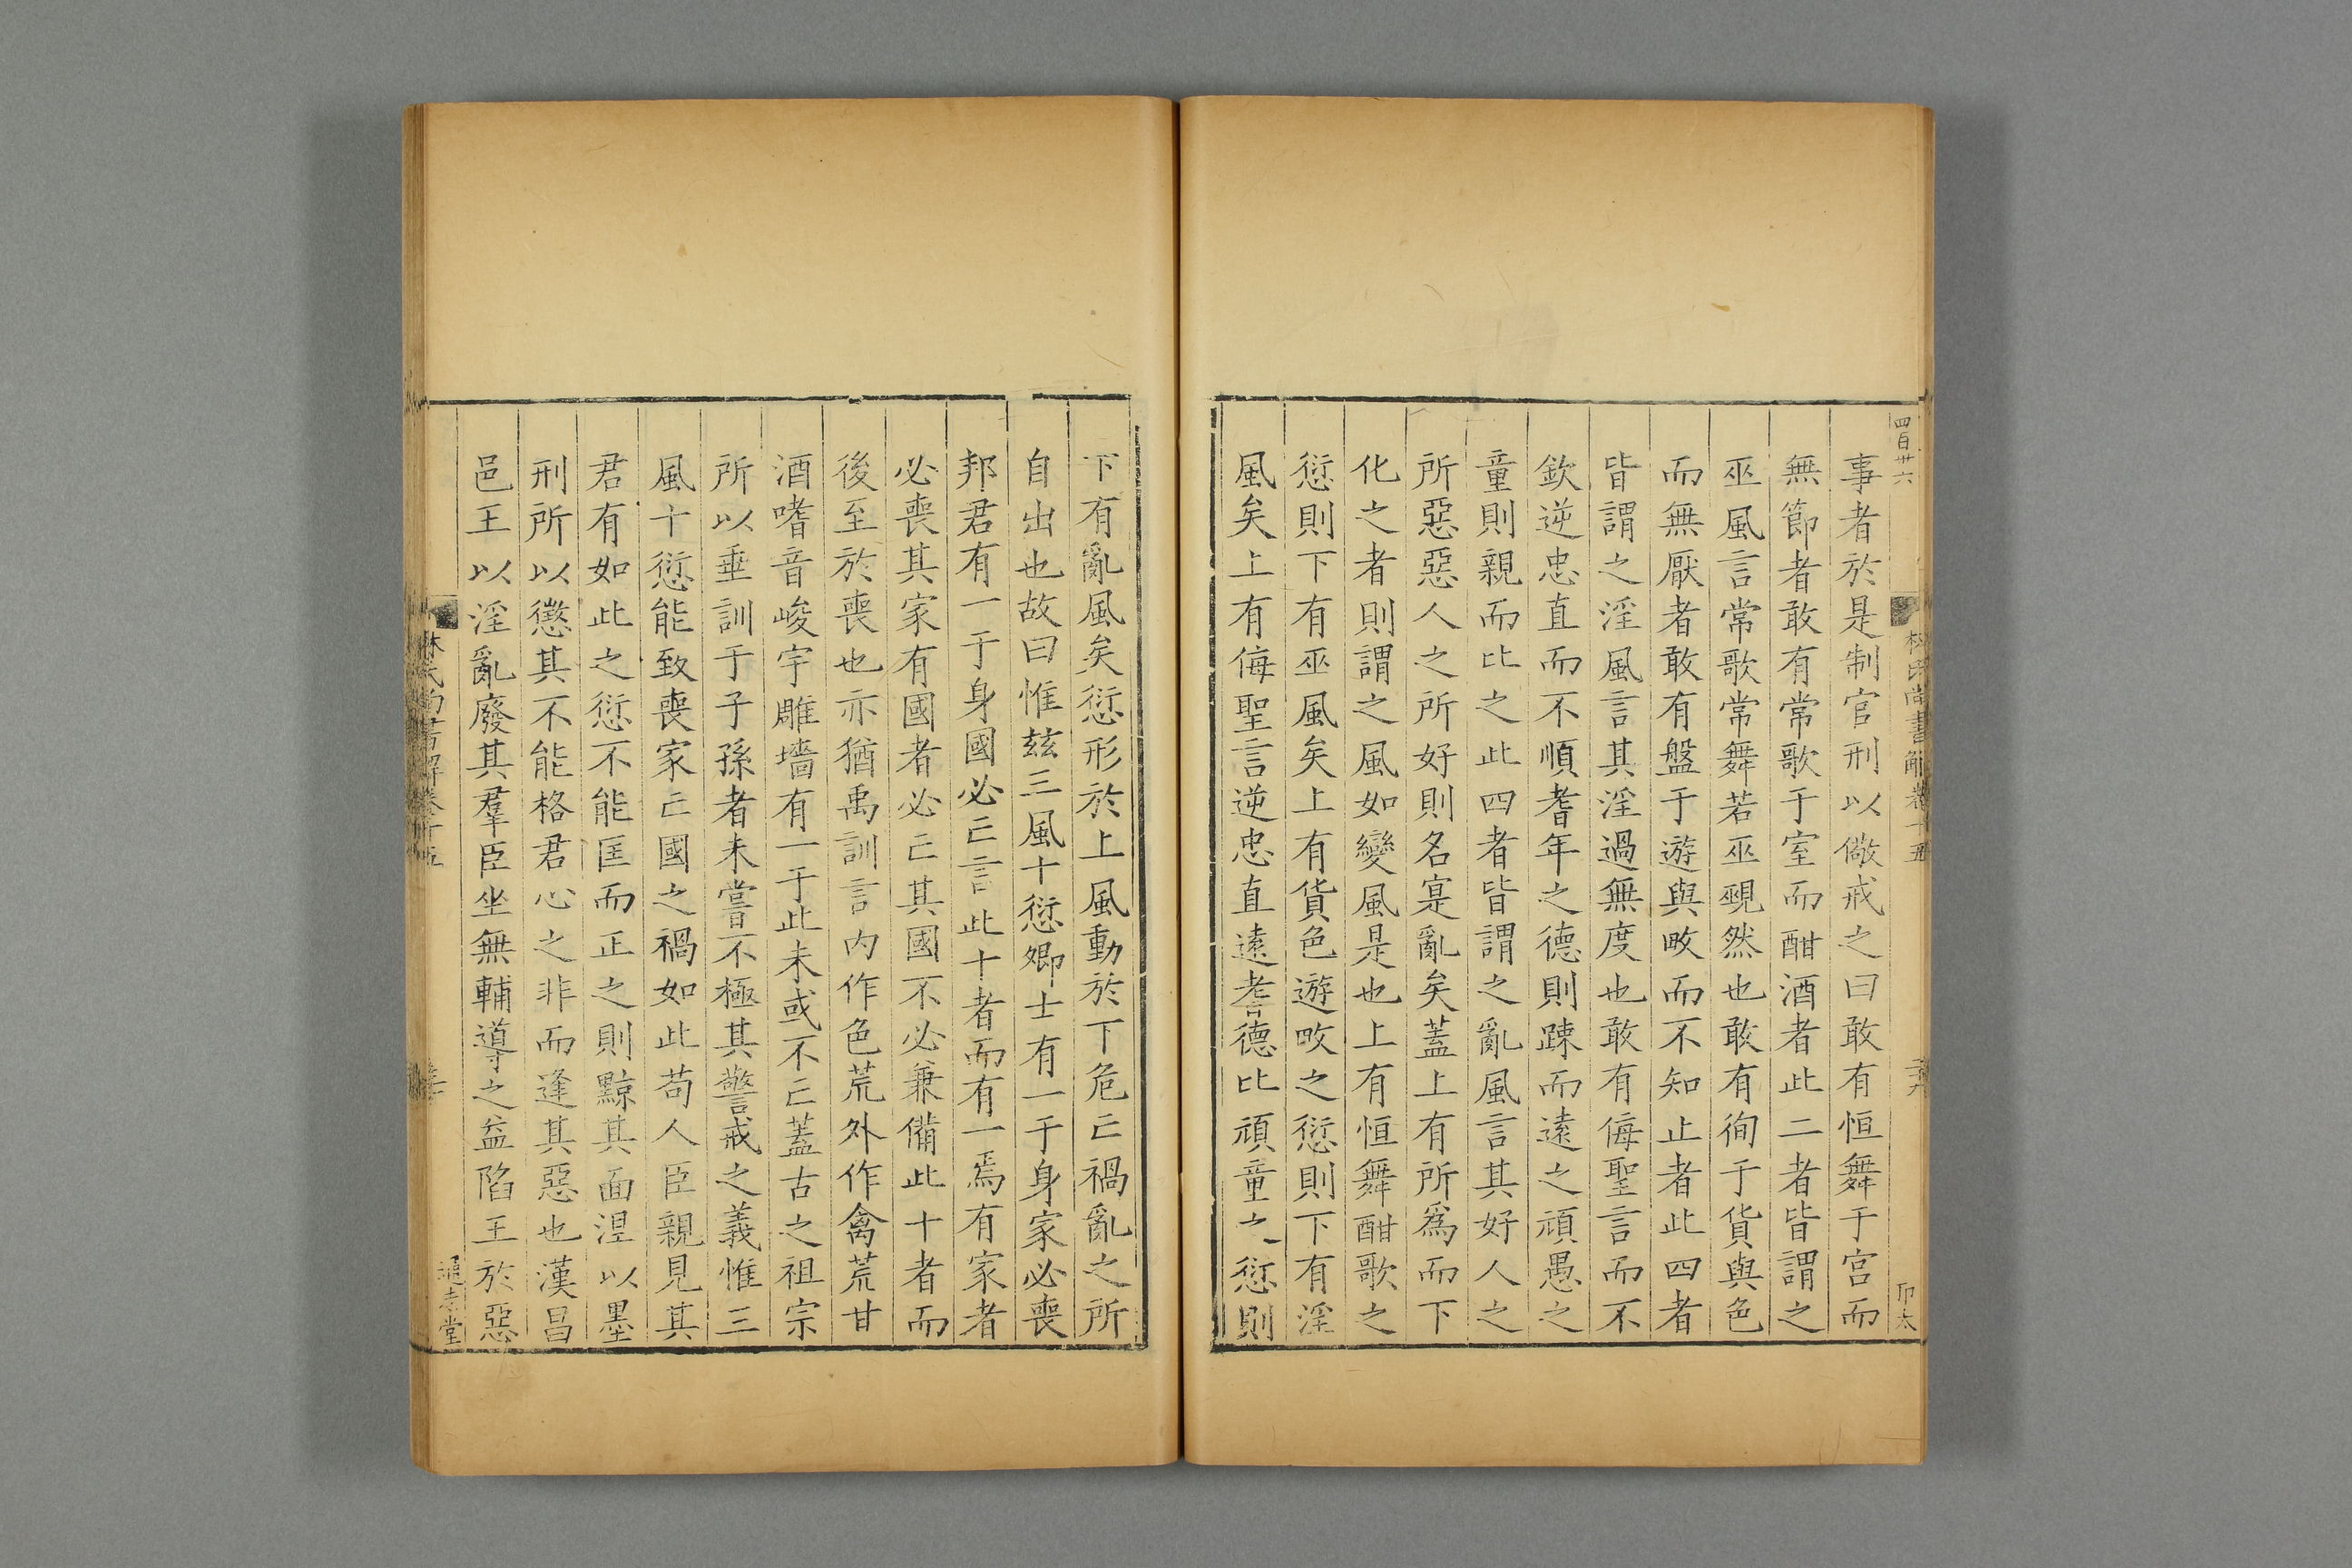 四百廿六
林氏尚書解卷十五
二十九
卬太
事者於是制官刑以儆戒之曰敢有恒舞于宫而
無節者敢有常歌于室而酣酒者此二者皆謂之
巫風言常歌常舞若巫覡然也敢有徇于貨與色
而無厭者敢有盤于遊與畋而不知止者此四者
皆謂之淫風言其淫過無度也敢有侮聖言而不
欽逆忠直而不順耆年之德則踈而遠之頑愚之
童則親而比之此四者皆謂之亂風言其好人之
所惡惡人之所好則名寔亂矣蓋上有所爲而下
化之者則謂之風如變風是也上有恒舞酣歌之
愆則下有巫風矣上有貨色遊畋之愆則下有淫
風矣上有侮聖言逆忠直遠耆德比頑童之愆則
下有亂風矣愆形於上風動於下危亡禍亂之所
自出也故曰惟兹三風十愆卿士有一于身家必喪
邦君有一于身國必亡言此十者而有一焉有家者
必喪其家有國者必亡其國不必兼備此十者而
後至於喪也亦猶禹訓言内作色荒外作禽荒甘
酒嗜音峻宇雕墻有一于此未或不亡蓋古之祖宗
所以垂訓于子孫者未嘗不極其警戒之義惟三
風十愆能致喪家亡國之禍如此苟人臣親見其
君有如此之愆不能匡而正之則黥其面涅以墨
刑所以懲其不能格君心之非而逢其惡也漢昌
邑王以淫亂廢其羣臣坐無輔導之益陷王於惡
林氏尚書解卷十五
通志堂